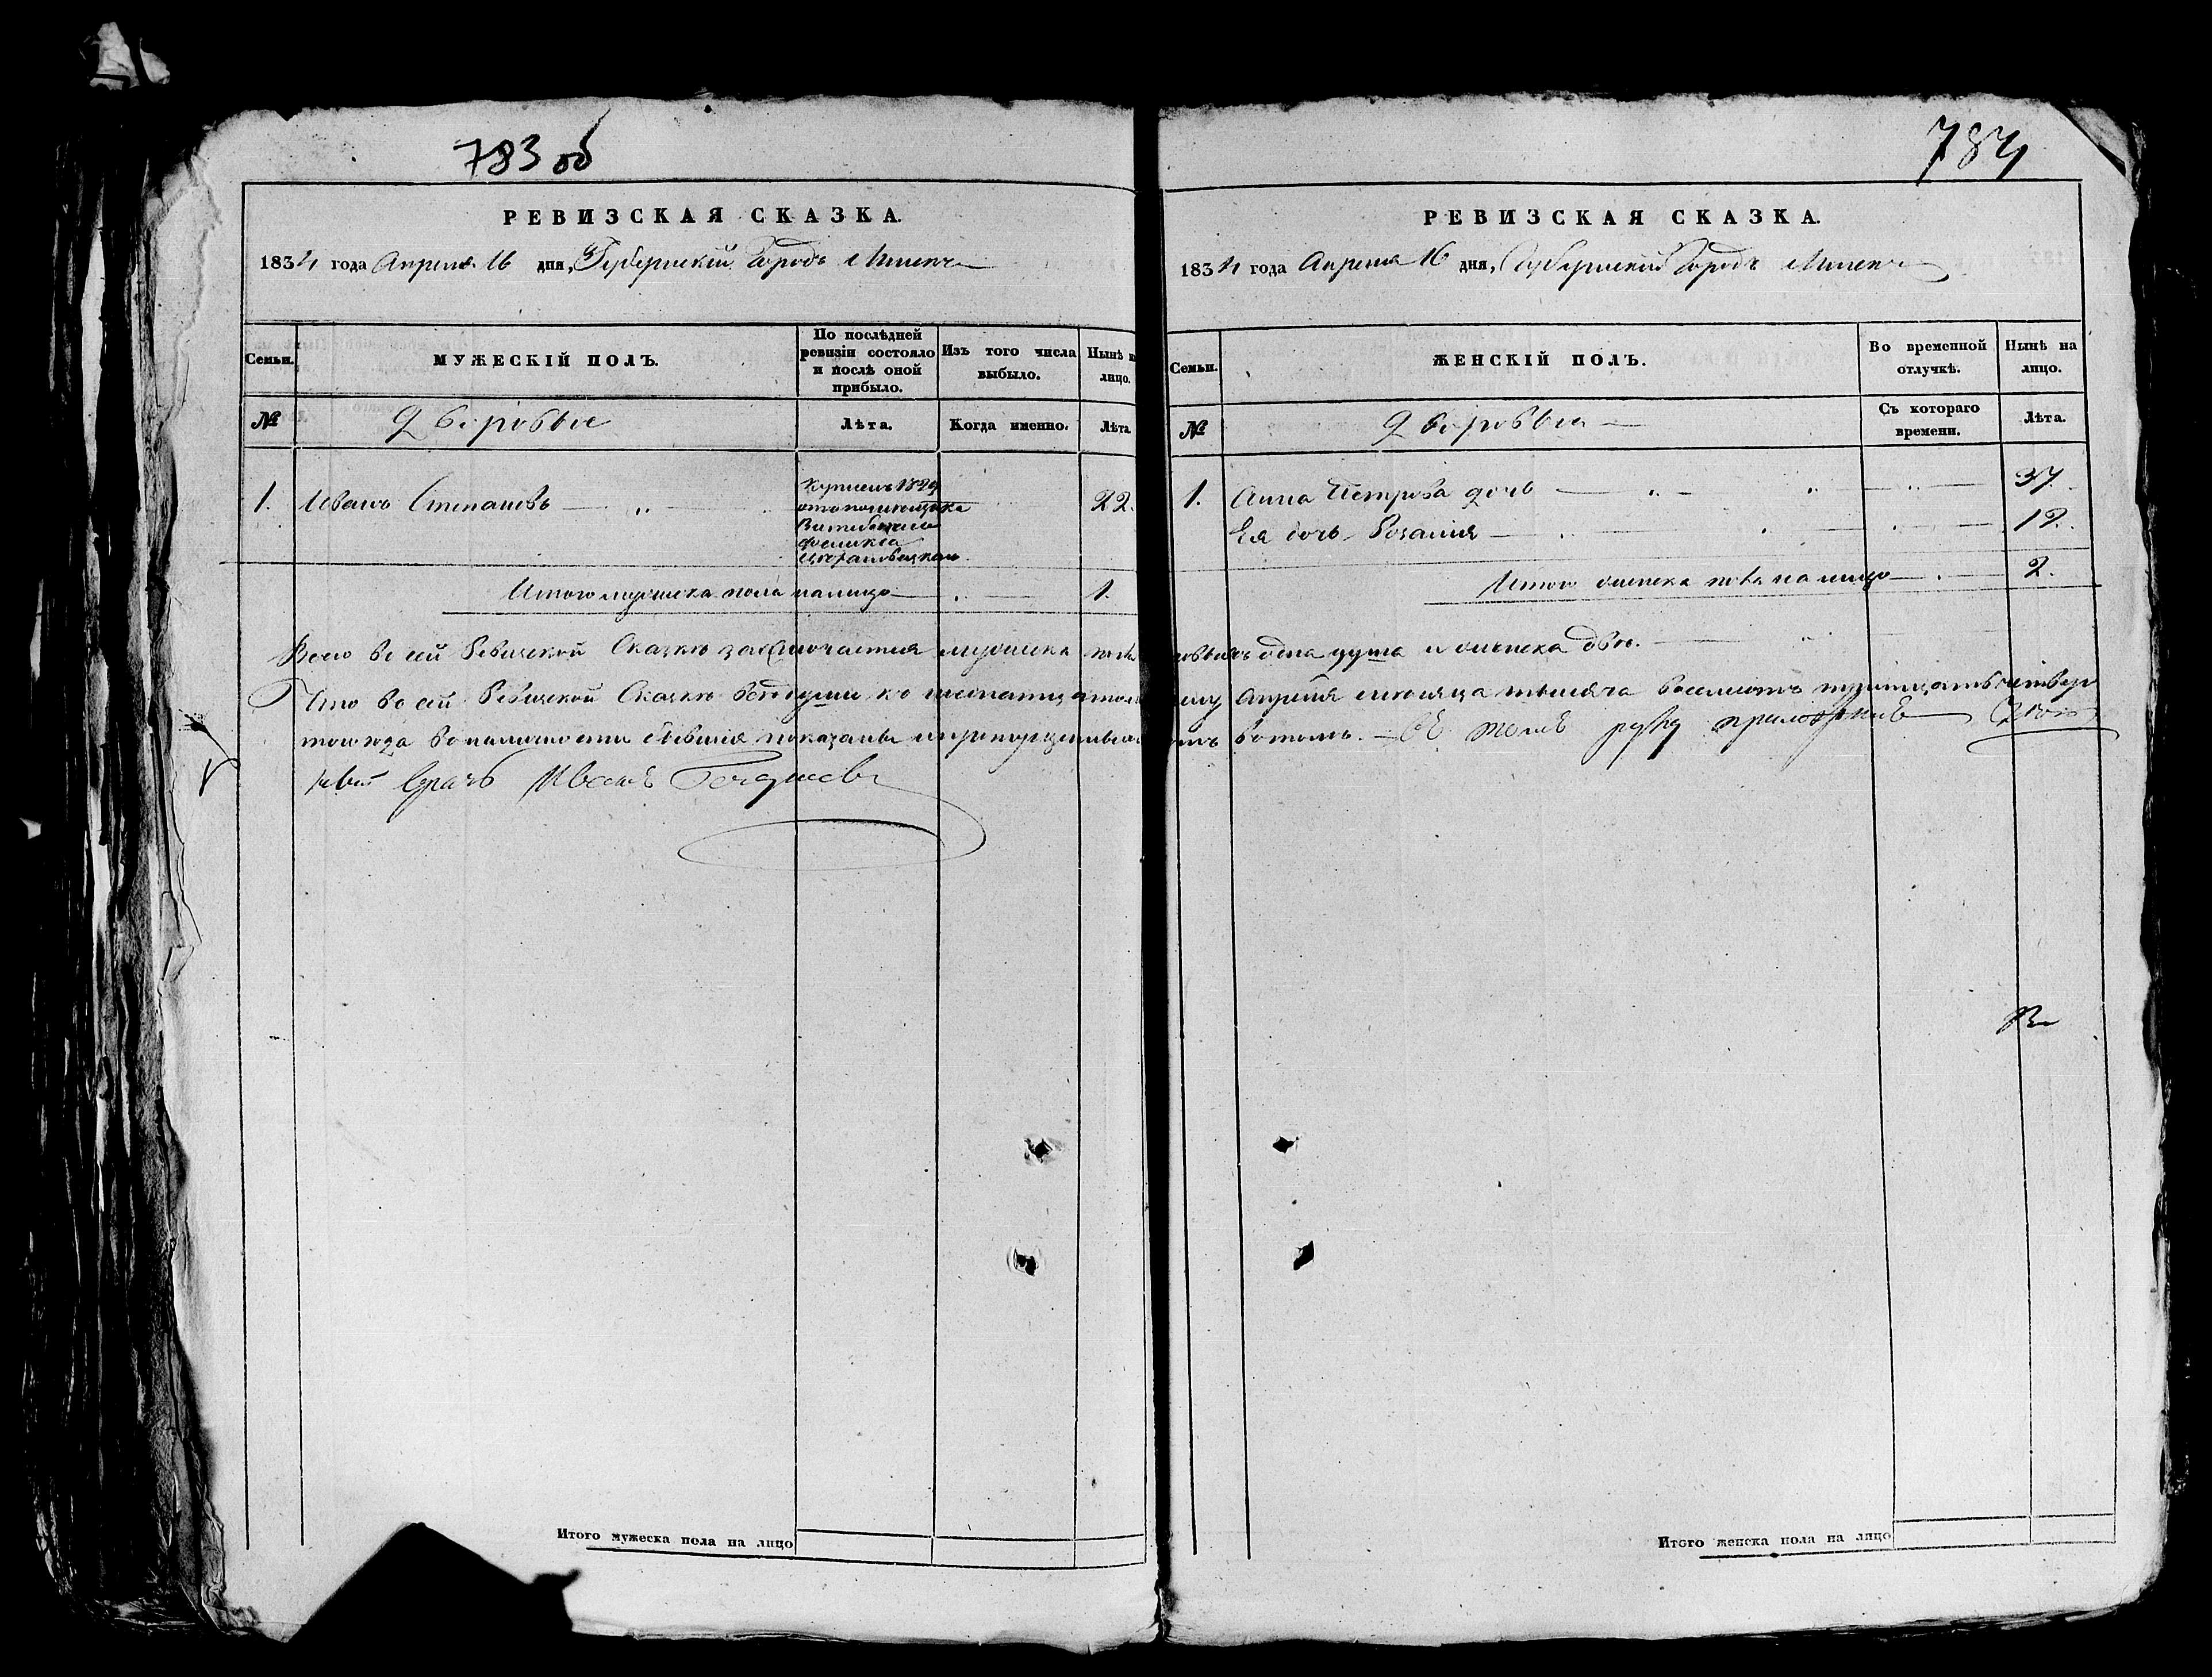 783 об
РЕВИЗСКАЯ СКАЗКА.
1834 года Апреля 16 дня, Губернский Городъ Минскъ
Семьи.
МУЖЕСКІЙ ПОЛЪ.
По послѣдней ревизіи состояло и послѣ оной прибыло.
Изъ того числа выбыло.
Нынѣ на лицо.
№
Дворовые
Лѣта.
Когда именно.
Лѣта.
1. Иванъ Степановъ
Купленъ 1829
отъ помещика
Витебскаго
Феликса
22.
Итого мужеска пола налицо 1.
784
РЕВИЗСКАЯ СКАЗКА.
1834 года Апреля 16 дня, Губернский Городъ Минскъ
Семьи.
ЖЕНСКІЙ ПОЛЪ.
Во временной отлучкѣ.
Нынѣ на лицо.
№
Дворовыя
Съ котораго времени.
Лѣта.
1. Анна Петрова дочь 37
Ея дочь Розалия 12.
Итого женска пола на лицо 2.
Всего в сей Ревизской Сказке заключается мужеска пола дворовыхъ одна душа и женска две.
Что в сей Ревизской Сказке все души к шестнадцатому числу Апреля месяца тысяча восемьсотъ тридцать четвер
того года в наличности бывшия показаны и в томъ. Въ томъ руку приложилъ
врачъ Иванъ
Итого мужеска пола на лицо
Итого женска пола на лицо